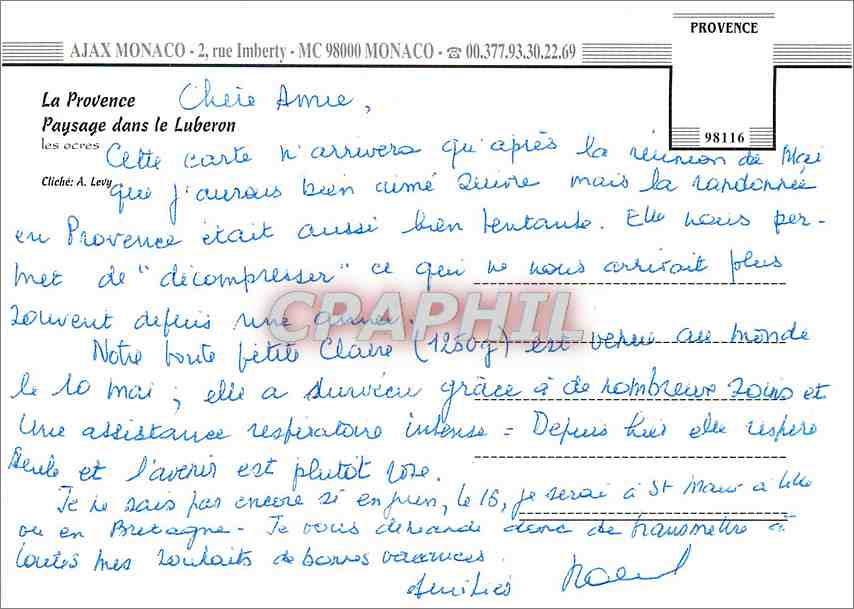 PROVENCE
AJAX MONACO - 2, rue Imberty - MC 98000 MONACO - ☎ 00.377.93.30.22.69
98116
La Provence
Paysage dans le Luberon
les ocres
Cliché: A. Levy
Chère Amie,
Cette carte n'arrivera qu'après la réunion de Mai
que j'aurais bien aimé suivre mais la randonnée
en Provence était aussi bien tentante. Elle nous per-
met de "décompresser" ce qui ne nous arrivait plus
souvent depuis une année.
CPAPHIL
Notre toute petite Claire (1250g) est venu au monde
le 10 mai ; elle a survécu grâce à de nombreux soins et
une assistance respiratoire intense = Depuis hier elle respire
seule et l'avenir est plutôt rose.
Je ne sais pas encore si en juin, le 16, je serai à St Maur à Lille
ou en Bretagne - Je vous demande donc de transmettre à
toutes mes souhaits de bonnes vacances.
Amitiés